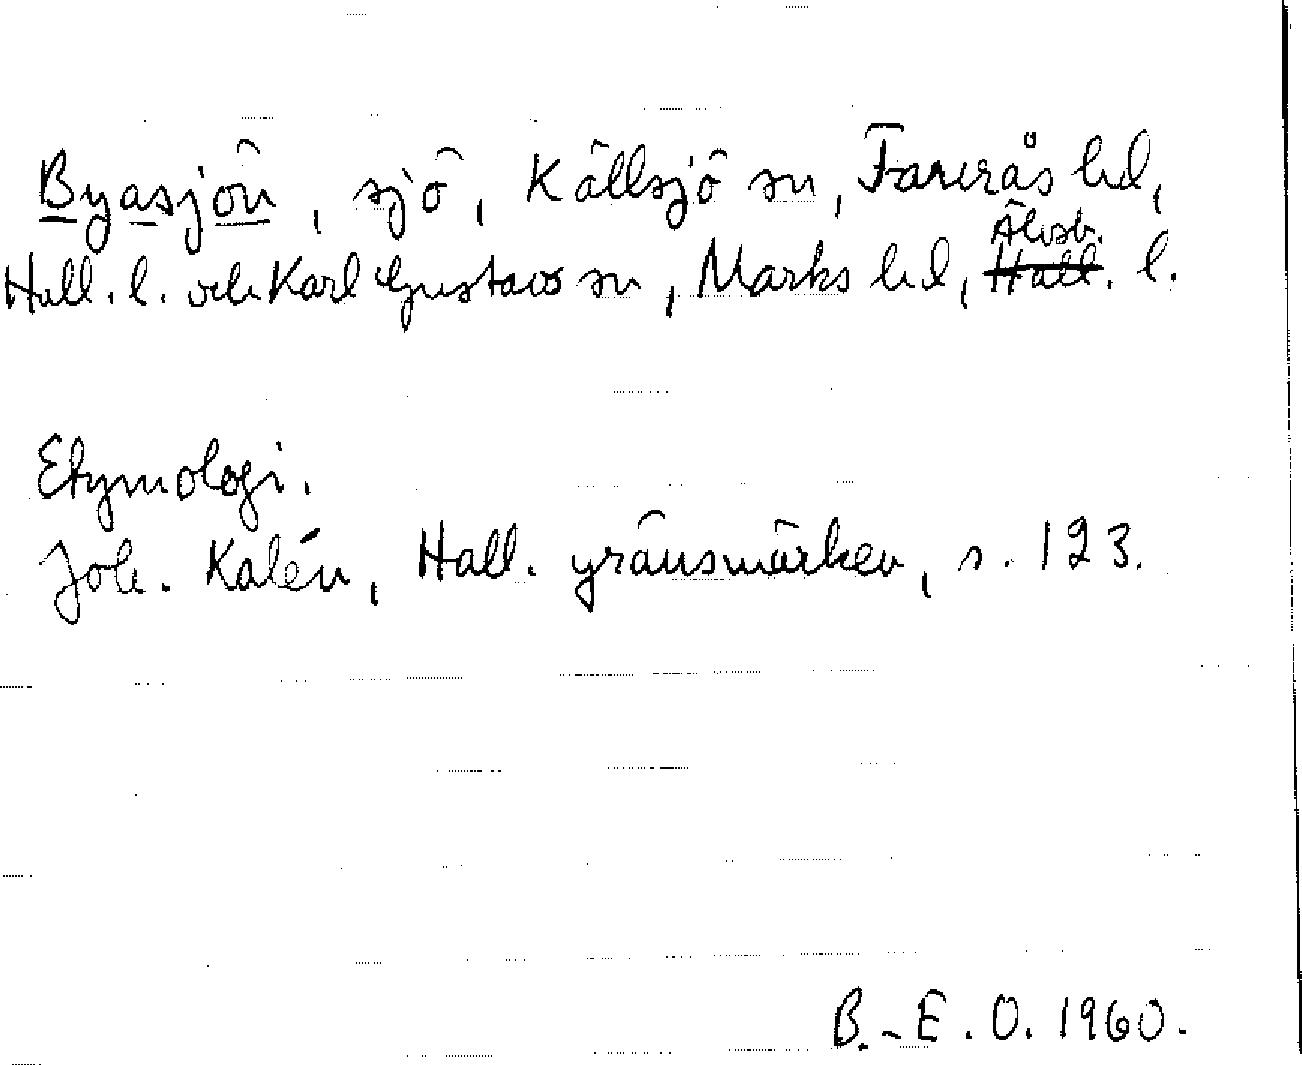 Byasjön, sjö, Källsjö sn, Faurås hd,
Hall. l. och Karl Gustavs sn, Marks hd, Älvsb. l.
Etymologi.
Joh. Kalén, Hall. gränsmärken, s. 123.
B.-E. O. 1960.